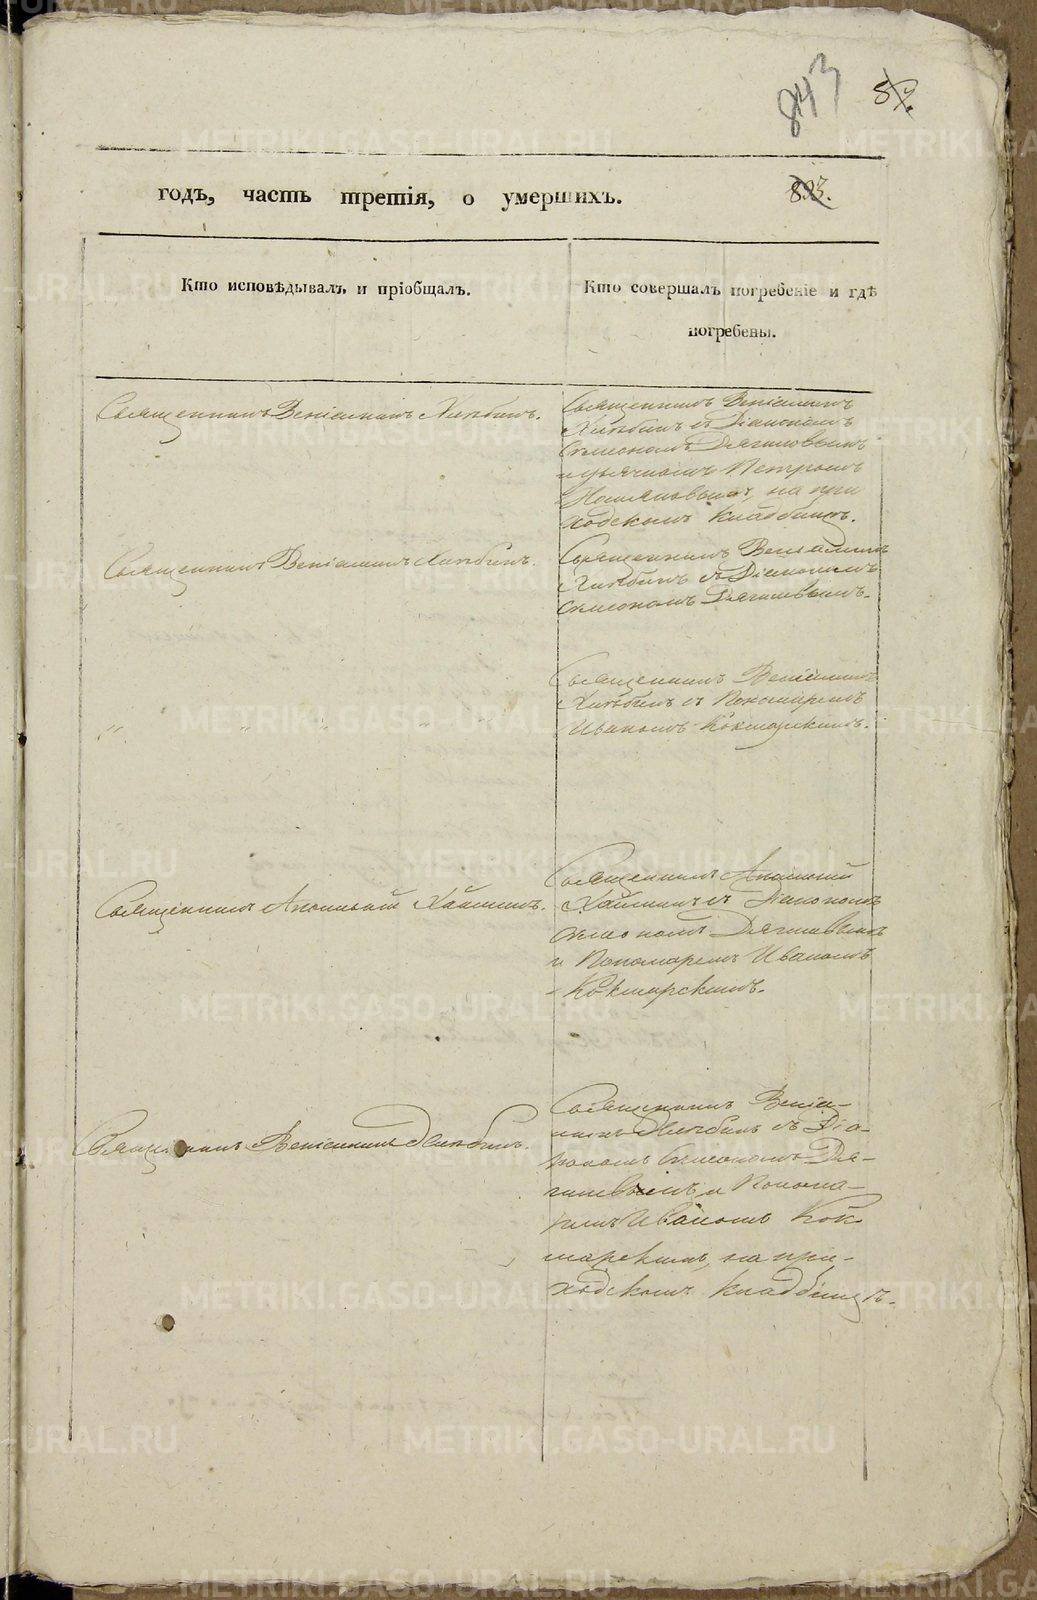 843
годъ, часть третія, о умершихъ.
Кто исповѣдывалъ и пріобщалъ.
Кто совершалъ погребеніе и гдѣ
погребены.
Священникъ Веніаминъ Хлѣбинъ.
Священникъ Веніаминъ
Хлѣбинъ съ Діакономъ
Симеономъ Дягилевымъ
и дьячкомъ Петромъ
на при
ходскомъ кладбищѣ.
Священникъ Веніаминъ Хлѣбинъ.
Священникъ Веніаминъ
Хлѣбинъ съ Діакономъ
Симеономъ Дягилевымъ.
Священникъ Веніаминъ
Хлѣбинъ съ Пономаремъ
Иваномъ Кокшарскимъ.
" " " "
Священникъ Аполлоній
Священникъ Аполлоній
съ Діакономъ
Симеономъ Дягилевымъ
и Пономаремъ Иваномъ
Кокшарскимъ.
Священникъ Веніаминъ Хлѣбинъ.
Священникъ Веніа-
минъ Хлѣбинъ съ Діа-
кономъ Симеономъ Дя-
гилевымъ и Понома-
ремъ Иваномъ Кок-
шарскимъ, на при-
ходскомъ кладбищѣ.
METRIKI.GASO-URAL.RU